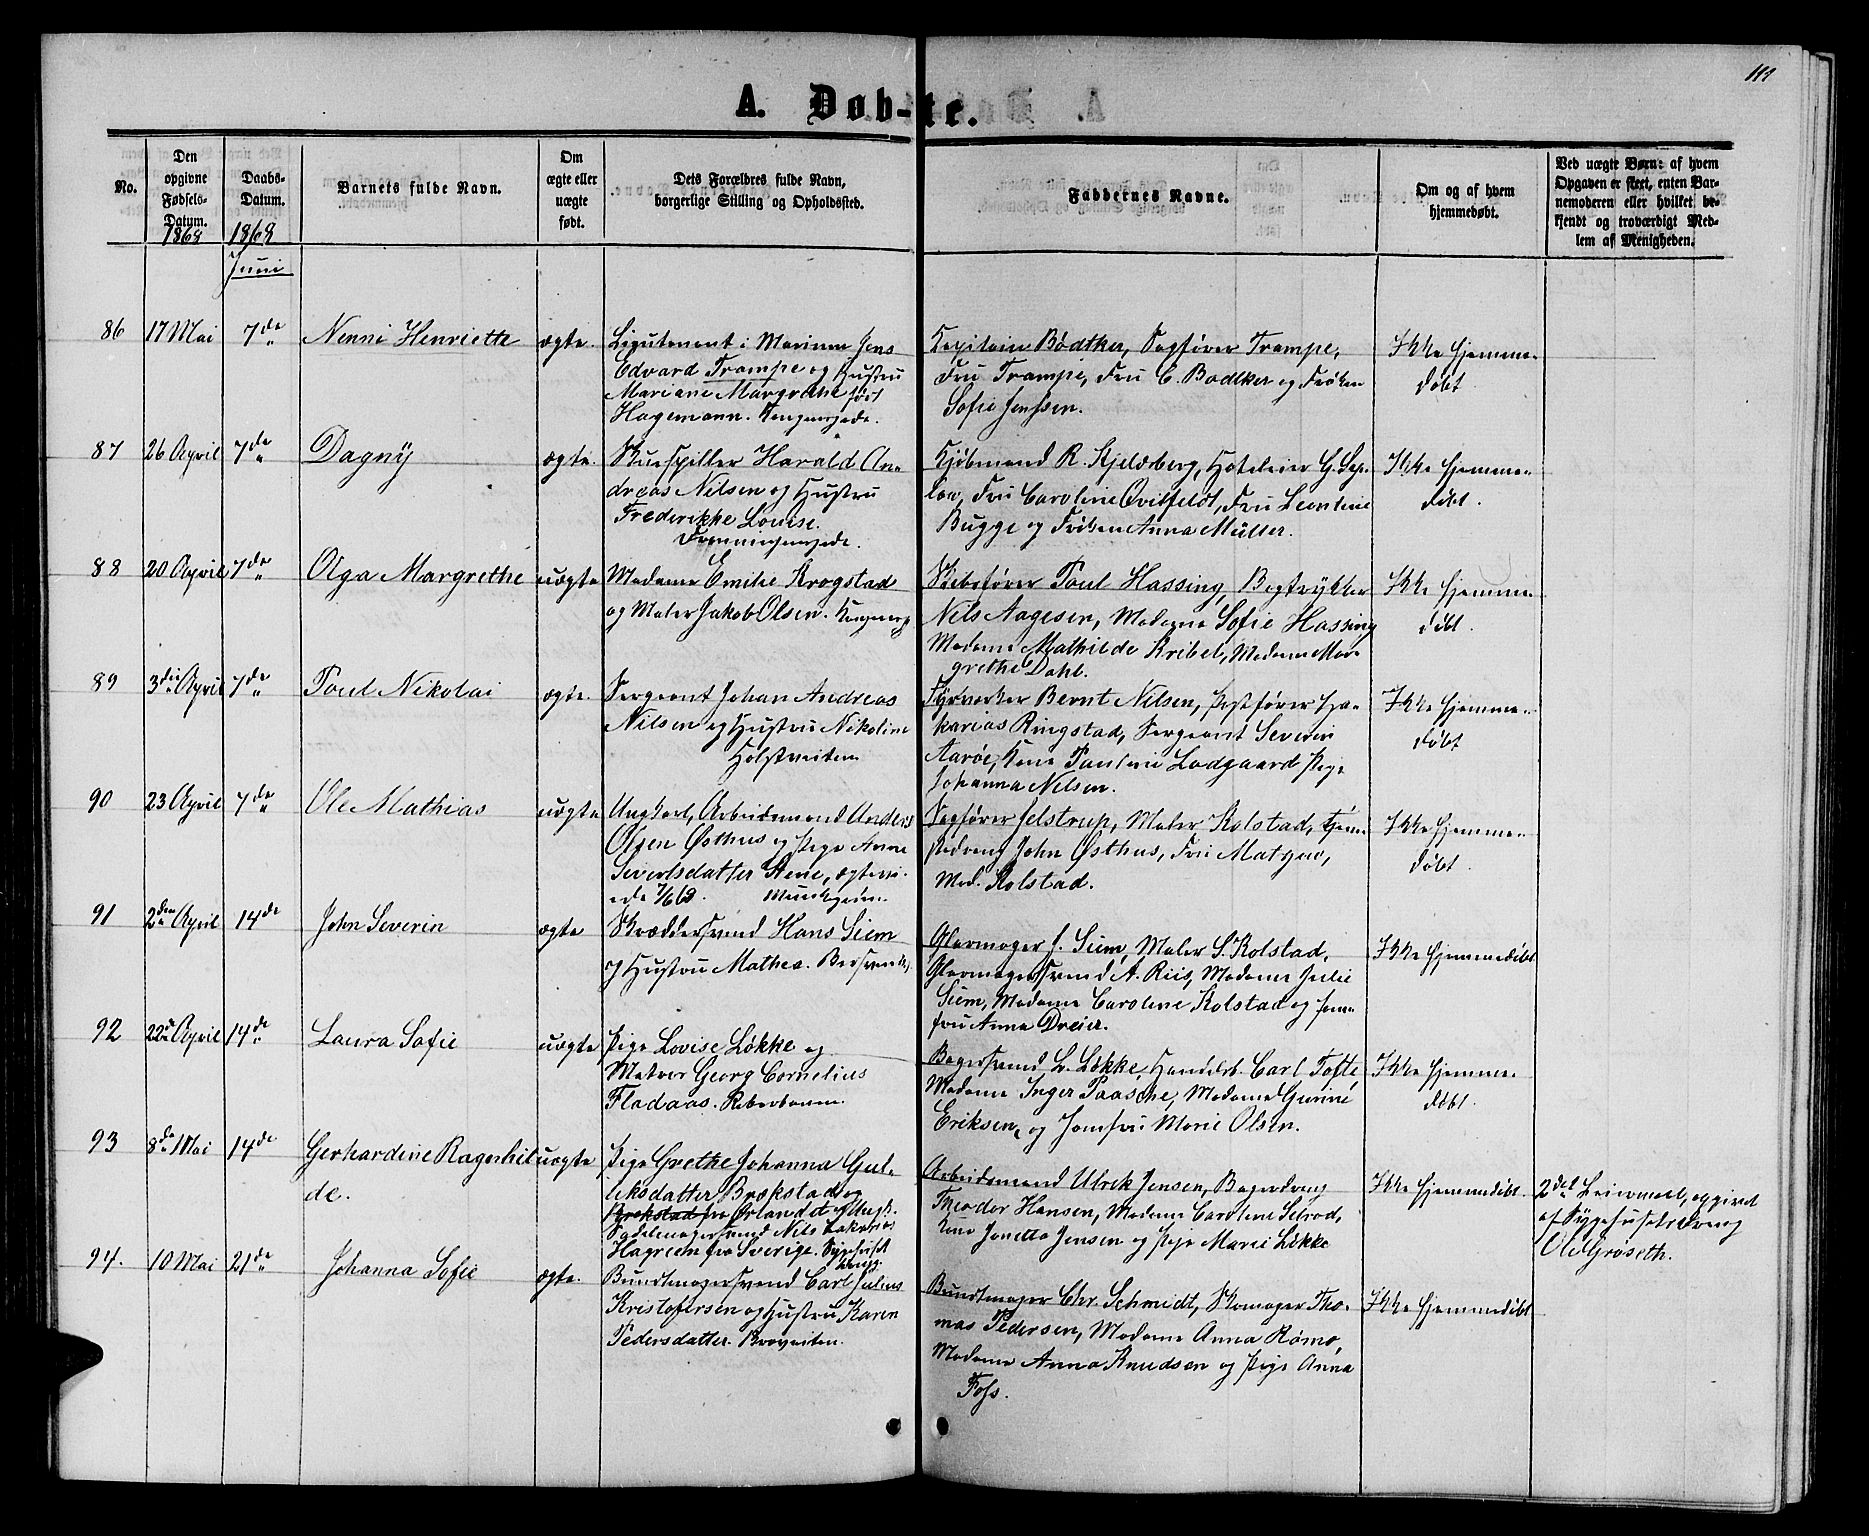 111
A. Døb-te.
No.
Den
opgivne
Fødsels-
Datum.
1868
Daabs-
Datum.
1868
Juni
Barnets fulde Navn.
Om
ægte eller
uægte
født.
Dets Forældres fulde Navn,
borgerlige Stilling og Opholdssted.
Faddernes Navne.
Om og af hvem
hjemmedøbt.
Ved uægte Børn: af hvem
Opgaven er skeet, enten Bar-
nemoderen eller hvilket be-
kjendt og troværdigt Med-
lem af Menigheden.
86
17 Mai
7de
Nenni Henriette
ægte.
Lieutenant i Marinen Jens
Edvard Trampe og Hustru
Mariane Margrethe født
Hagemann. Kongensgade.
Kapitain Bødtker, Sagfører Trampe,
Fru Trampe, Fru C. Bødtker og Frøken
Sofie Jenssen.
Ikke hjemme-
døbt.
87
26 April
7de
Dagny
ægte.
Skuespiller Harald An-
dreas Nilsen og Hustru
Frederikke Louise.
Dronningensgade.
Kjøbmand R. Kjeldsberg, Hoteleier G.
Fru Caroline Qvilfeldt, Fru Leontine
Bugge og Frøken Anna Müller.
Ikke hjemme-
døbt.
88
20 April
7de
Olga Margrethe
uægte
Madame Emilie Krogstad
og Maler Jakob Olsen. Kongensg.
Skibsfører Poul Hassing, Bogtrykker
Nils Aagesen, Madame Sofie Hassing
Madame Mathilde Kribel, Madame Mar-
grethe Dahl.
Ikke hjemme
døbt.
89
3die April
7de
Poul Nikolai
ægte.
Sergeant Johan Andreas
Nilsen og Hustru Nikoline
Holstveiten
Fyrverker Bernt Nilsen, Postfører Za-
karias Ringstad, Sergeant Severin
Aarøe, Kone Pauline Ladgaard Pige
Johanna Nilsen.
Ikke hjemme-
døbt
90
23 April
7de
Ole Mathias
uægte
Ungkarl, Arbeidsmand Anders
Olsen Østhus og Pige Anne
Sivertsdatter Stene, ægtevi-
ede 7/6 68. Munkegaden.
Sagfører Jelstrup, Maler Kolstad, Tjene-
stedreng John Østhus, Fru Matzow,
Mad. Kolstad.
Ikke hjemme-
døbt.
91
2den April
14de
John Severin
ægte
Skræddersvend Hans Siem
og Hustru Mathea.
Glarmager J. Siem, Maler S. Kolstad,
Glarmagersvend A. Riis, Madame Julie
Siem, Madame Caroline Kolstad og Jom-
fru Anna Dreier.
Ikke hjemmedøbt
92
22de April
14de
Laura Sofie
uægte
Pige Lovise Løkke og
Matros Georg Cornelius
Fladaas.
Bagersvend L. Løkke, Handelsb. Carl Tofte
Madame Inger Paasche, Madame Gurine
Eriksen, og Jomfru Marie Olsen.
Ikke hjemme-
døbt.
93
8de Mai
14de
Gerhardine Ragnhil-
de.
uægte
Pige Grethe Johanna Gul-
liksdatter Brækstad og
Brekstad fra Ørlandet og Ungk.
Sadelmagersvend Nils Jakobias
Hagreen fra Sverige. Sygehuset
Arbeidsmand Ulrik Jensen, Bagerdreng
Theodor Hansen, Madame Caroline Selrod,
Kone Jonetta Jensen og Pige Marie Løkke
Ikke hjemmedøbt.
2det Leiermaal, opgivet
af Sygehusetsdreng
Ole Grøseth.
94.
10 Mai
21de
Johanna Sofie
ægte.
Bundtmagersvend Carl Julius
Kristofersen og Hustru Karen
Pedersdatter. Brogveiten.
Bundtmager Chr. Schmidt, Skomager Tho-
mas Pedersen, Madame Anna Rømo,
Madame Anna Knudsen og Pige Anna
Foss.
Ikke hjemmedøbt